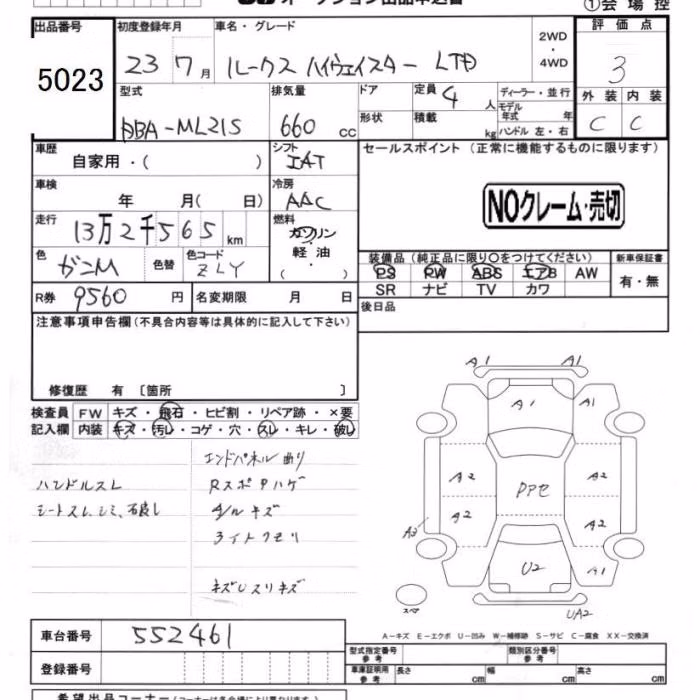 オークション出品申込書
①会場控
出品番号 初度登録年月 車名・グレード 評価点
5023 23 7月 ルークス ハイウェイスター LTD 2WD・4WD 3
型式 排気量 ドア 定員 4人 ディーラー・並行 外装 内装
DBA-ML21S 660 cc 形状 積載 kg モデル年式 年 ハンドル 左・右 C C
車歴 シフト セールスポイント(正常に機能するものに限ります)
自家用・( ) IAT
車検 冷房
年 月( 日) AAC NOクレーム・売切
走行 燃料
13万2千565km ガソリン
軽・油
( )
色 色替 色コード 装備品(純正品に限り○をつけてください) 新車保証書
ガンM ZLY PS PW ABS エアB AW 有・無
SR ナビ TV カワ
R券 9560円 名変期限 月 日 後日品
注意事項申告欄(不具合内容等は具体的に記入して下さい)
修復歴 有 〔箇所 〕
検査員 FW キズ・飛石・ヒビ割・リペア跡・×要
記入欄 内装 キズ・汚レ・コゲ・穴・スレ・キレ・破レ
エンドパネル曲り
ハンドルスレ
シートスレ、シミ
キズ
ライトクモリ
A1 A1
A1 A1
A2 A2
A2 A2
A3
U2 A1
UA2
スペア
A-キズ E-エクボ U-凹み W-補修跡 S-サビ C-腐食 XX-交換済
車台番号 552461
登録番号
型式指定番号 参考 類別区分番号 参考
車庫証明用 参考 長さ cm 幅 cm 高さ cm
希望出品コーナー